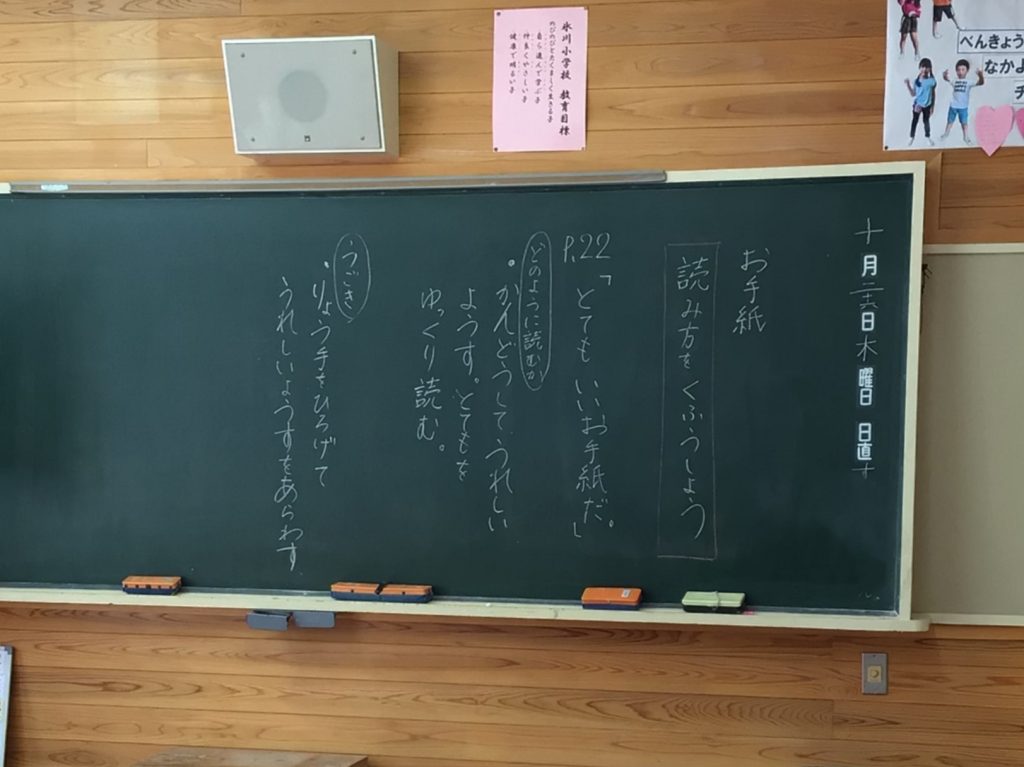 氷川小学校 教育目標
のびのびとたくましく生きる子
自ら進んで学ぶ子
仲良くやさしい子
健康で明るい子
べんきょう
なかよ
チ
十月二六日木曜日 日直
お手紙
読み方をくふうしよう
P.22
「とてもいいお手紙だ。」
どのように読むか
・かんどうして、うれしい
ようす。とてもを
ゆっくり読む。
うごき
・りょう手をひろげて
うれしいようすをあらわす